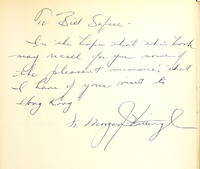 To Bill Safire —
In the hopes that this book
may recall for you some of
the pleasant memories that
I have of your visit to
Hong Kong